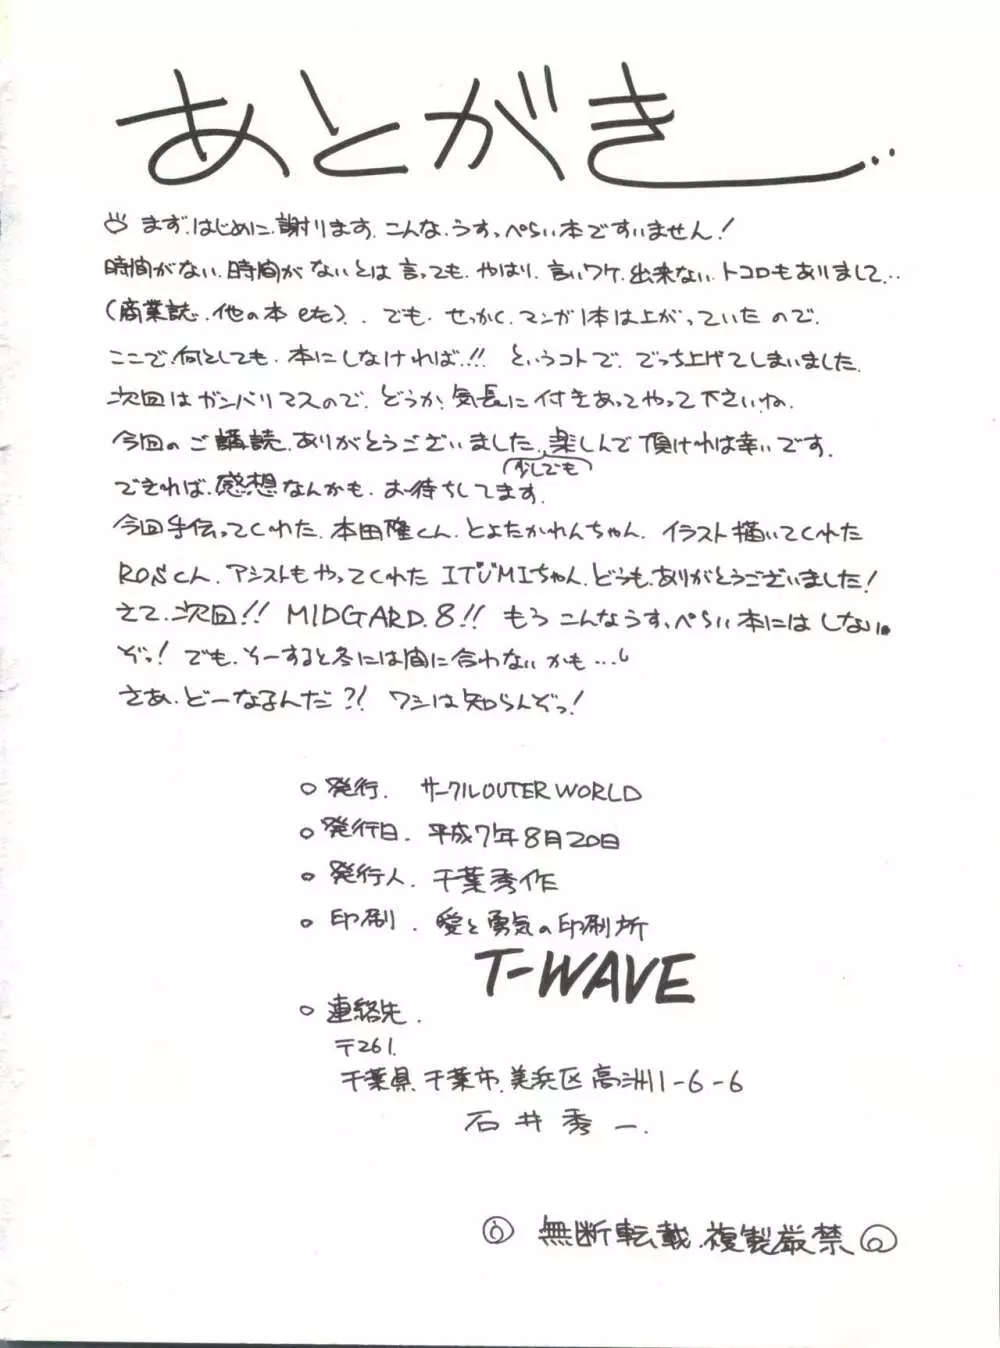 あとがき...
まず、はじめに、謝ります。こんな、うすっぺらい本ですいません!
時間がない、時間がないとは言っても、やはり、言いワケ、出来ない、トコロもありまして...
(商業誌、他の本 etc)、でも、せっかく、マンガ1本は上がっていたので、
ここで、何としても、本にしなければ..!! というコトで、でっち上げてしまいました。
次回はガンバリマスので、どうか、気長に付きあってやって下さいね。
今回のご購読、ありがとうございました、楽しんで頂ければ幸いです。
少しでも
できれば、感想なんかも、お待ちしてます。
今回手伝ってくれた、本田隆くん、とよたかれんちゃん、イラスト描いてくれた
ROSくん、アシストもやってくれたITUMIちゃん、どうも、ありがとうございました!
さて、次回!! MIDGARD.8!! もう こんなうすっぺらい本にはしない。
ぞっ! でも、そーすると冬には間に合わないかも...
さあ、どーなるんだ?! ワシは知らんぞっ!
○発行. サークルOUTER WORLD
○発行日. 平成7年8月20日
○発行人. 千葉秀作
○印刷. 愛と勇気の印刷所
T-WAVE
○連絡先.
〒261.
千葉県、千葉市、美浜区高洲1-6-6
石井秀一.
無断転載、複製厳禁